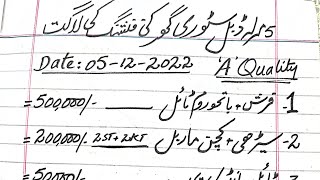 5 مرلہ ڈبل سٹوری گھر کی فنشنگ کی لاگت
Date: 05-12-2022 'A' Quality
1- فرش + باتھ روم ٹائل ___ /-500,000=
2- سیڑھی + کچن ماربل 2ST+2KT /-200,000=
/-500,000=